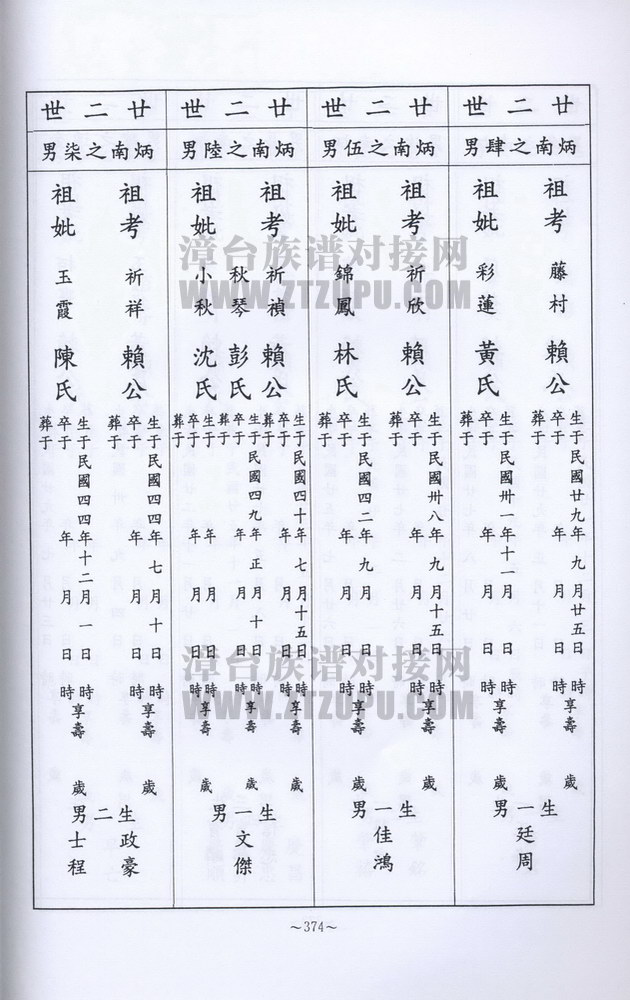 廿二世
炳南之肆男
祖考 藤村 賴公
生于民國廿九年九月廿五日時享壽歲
卒于年月日時
葬于
祖妣 彩蓮 黃氏
生于民國卅一年十一月日時享壽歲
卒于年月日時
葬于
生一男
廷周
廿二世
炳南之伍男
祖考 祈欣 賴公
生于民國卅八年九月十五日時享壽歲
卒于年月日時
葬于
祖妣 錦鳳 林氏
生于民國四二年九月日時享壽歲
卒于年月日時
葬于
生一男
佳鴻
廿二世
炳南之陸男
祖考 祈禎 賴公
生于民國四十年七月十五日時享壽歲
卒于年月日時
葬于
秋琴 彭氏
生于民國四九年正月十日時享壽歲
卒于年月日時
葬于
祖妣 小秋 沈氏
生于年月日時享壽歲
卒于年月日時
葬于
生一男
文傑
廿二世
炳南之柒男
祖考 祈祥 賴公
生于民國四四年七月十日時享壽歲
卒于年月日時
葬于
祖妣 玉霞 陳氏
生于民國四四年十二月一日時享壽歲
卒于年月日時
葬于
生二男
政豪
士程
~374~
漳台族谱对接网
WWW.ZTZUPU.COM
漳台族谱对接网
WWW.ZTZUPU.COM